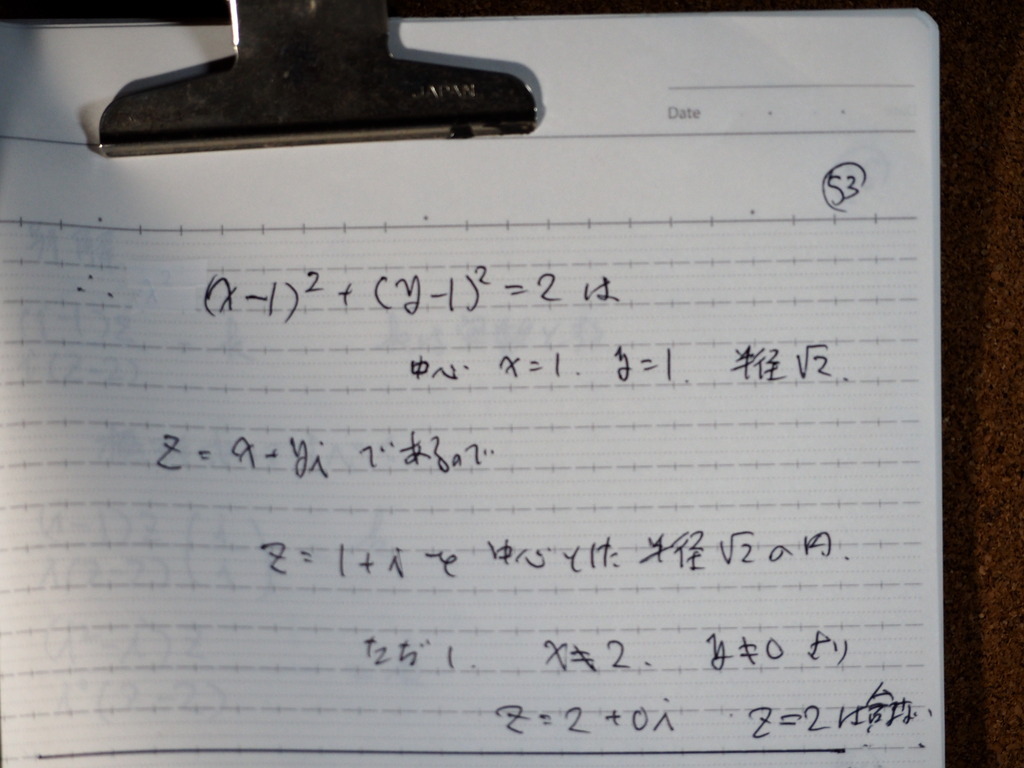 JAPAN
Date
53
∴ (x-1)² + (y-1)² = 2 は
中心. x = 1. y = 1. 半径 √2.
z = x + yi であるので
z = 1 + i を 中心とした 半径 √2 の 円.
ただし. x ≠ 2. y ≠ 0 より
z = 2 + 0i z = 2 は含まない.